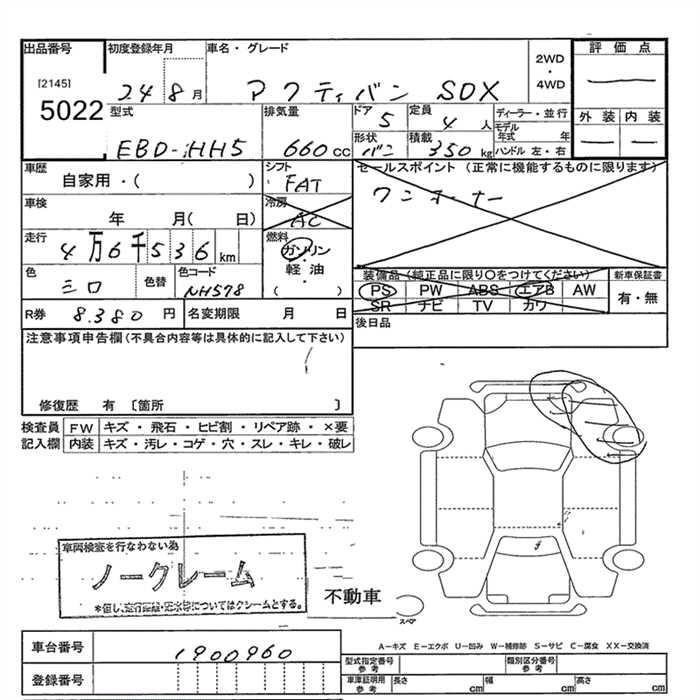 出品番号 初度登録年月 車名・グレード 評価点
[2145] 2WD・4WD
5022 24 8月 アクティバン SDX
型式 排気量 ドア 定員 ディーラー・並行 外装 内装
5 4人 モデル年式 年
EBD-HH5 660cc 形状 バン 積載 350kg ハンドル 左・右
車歴 シフト セールスポイント (正常に機能するものに限ります)
自家用・( ) FAT ワンオーナー
車検 冷房
年 月( 日) AC
走行 燃料
4万6千536km ガソリン・軽油・( )
色 色替 色コード 装備品(純正品に限り○をつけてください) 新車保証書
シロ NH578 PS PW ABS エアB AW 有・無
SR ナビ TV カワ
R券 8.380円 名変期限 月 日 後日品
注意事項申告欄(不具合内容等は具体的に記入して下さい)
修復歴 有〔箇所 〕
検査員 FW キズ・飛石・ヒビ割・リペア跡・×要
記入欄 内装 キズ・汚レ・コゲ・穴・スレ・キレ・破レ
車両検査を行なわない為
ノークレーム
不動車
スペア
A-キズ E-エクボ U-凹み W-補修跡 S-サビ C-腐食 XX-交換済
車台番号 1900960 型式指定番号 参考 類別区分番号 参考
登録番号 車庫証明用 参考 長さ cm 幅 cm 高さ cm